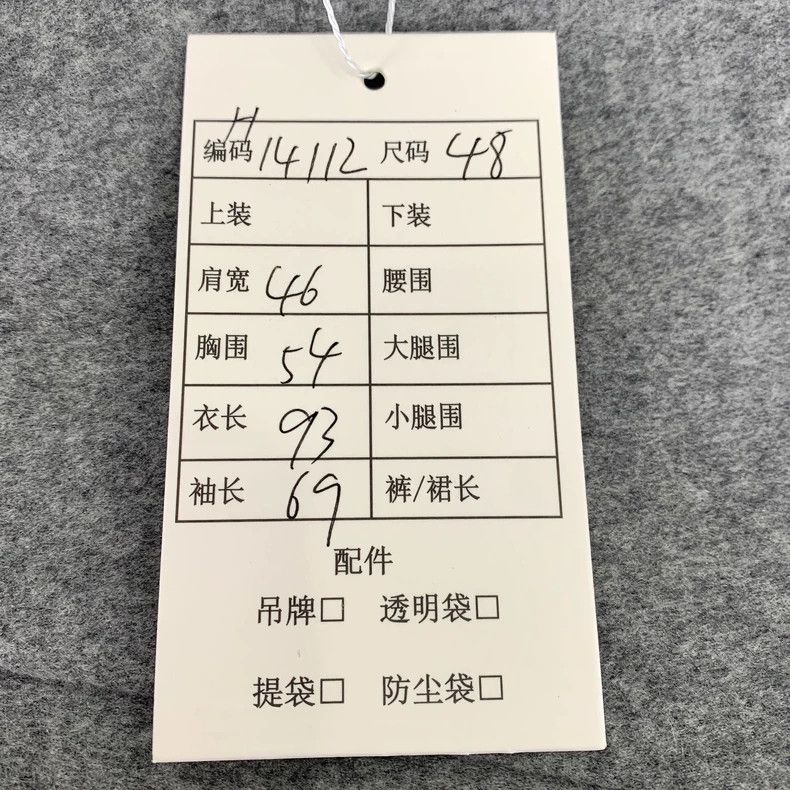 编码 H14112 尺码 48
上装 下装
肩宽 46 腰围
胸围 54 大腿围
衣长 93 小腿围
袖长 69 裤/裙长
配件
吊牌□ 透明袋□
提袋□ 防尘袋□